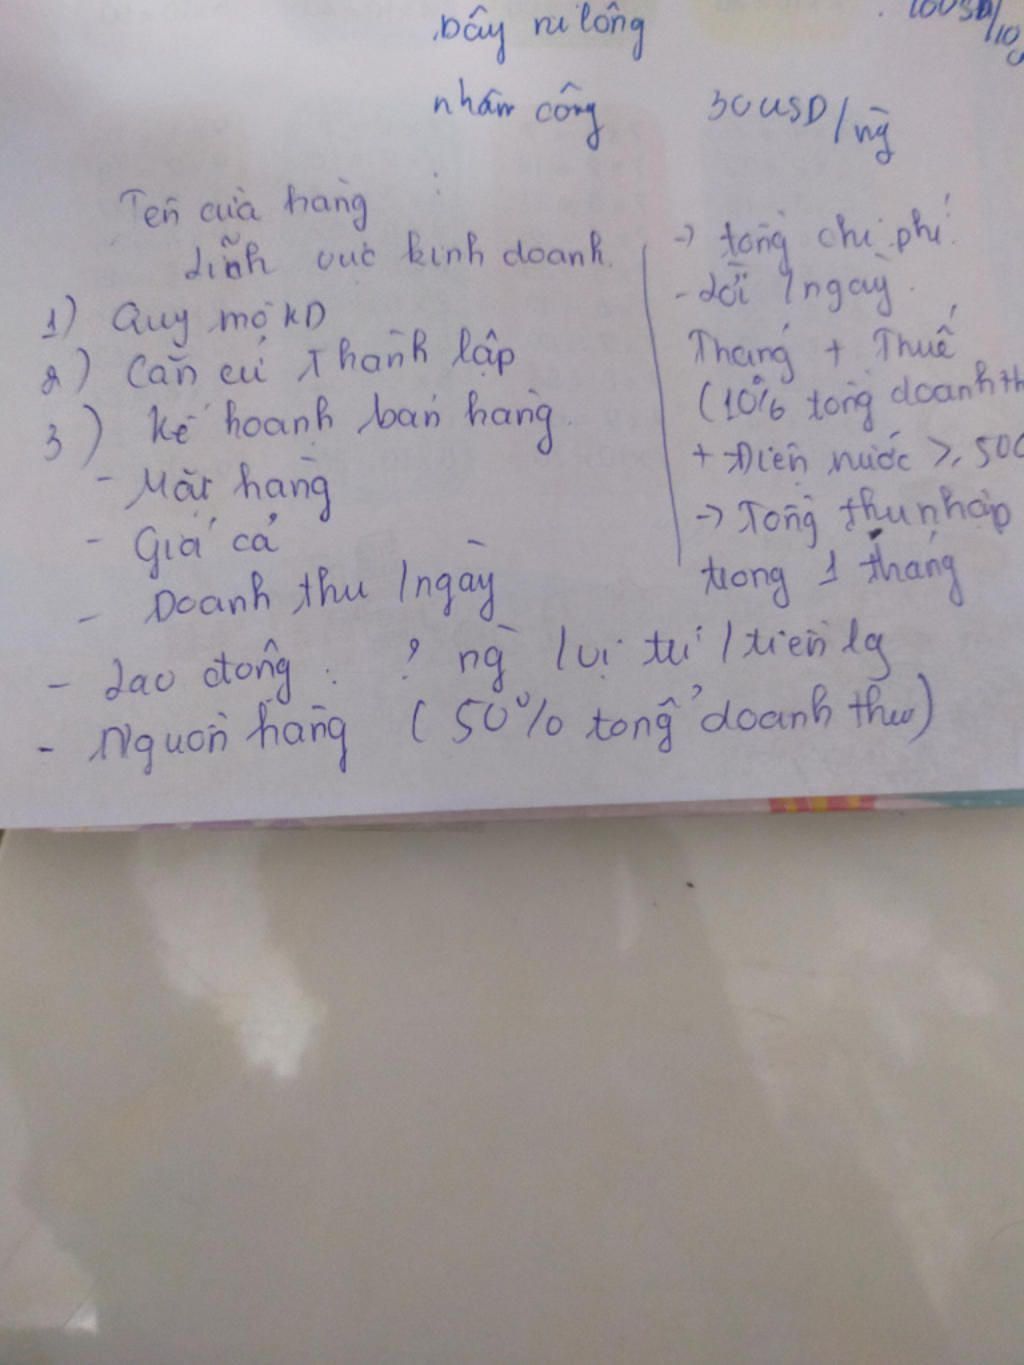 bây ni lông 100USD/10
nhâm công 30USD/ng
Tên cửa hàng :
Lĩnh vực kinh doanh.
1) Quy mô KD
2) Căn cứ Thành lập
3) Kế hoạnh bán hàng.
- Mặt hàng
- Giá cả
- Doanh thu /ngày
- Lao động : ? ng /vị trí /tiền lg
- Nguồn hàng (50% tổng doanh thu)
-> tổng chi phí.
- Lời /ngày.
Tháng + Thuế
(10% tổng doanh th
+ Điện nước >, 500
-> Tổng thu nhập
trong 1 tháng